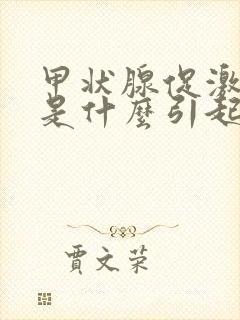 甲状腺促激
是什麼引起
賈文荣